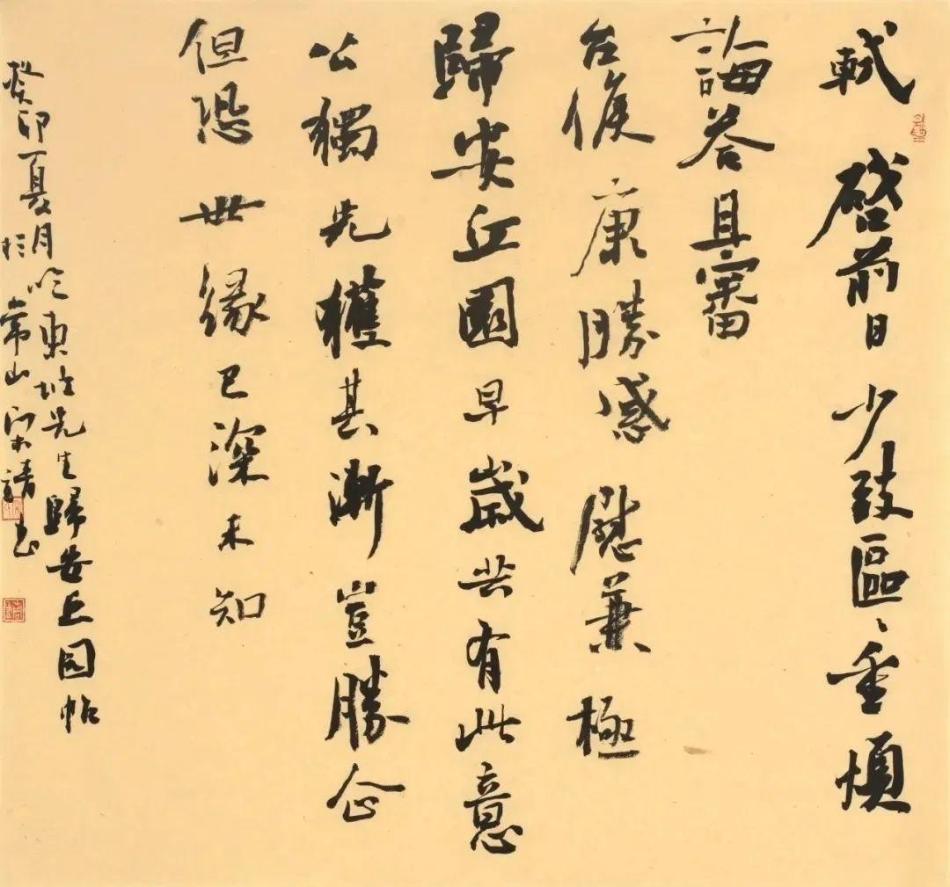 軾啓前日少致區〻重煩
誨荅且審
台候康勝感慰兼極
歸安丘園早歲共有此意
公獨先獲其漸豈勝企
但恐世緣已深未知
癸卯夏月臨東坡先生歸安丘園帖
於常山宋靖書